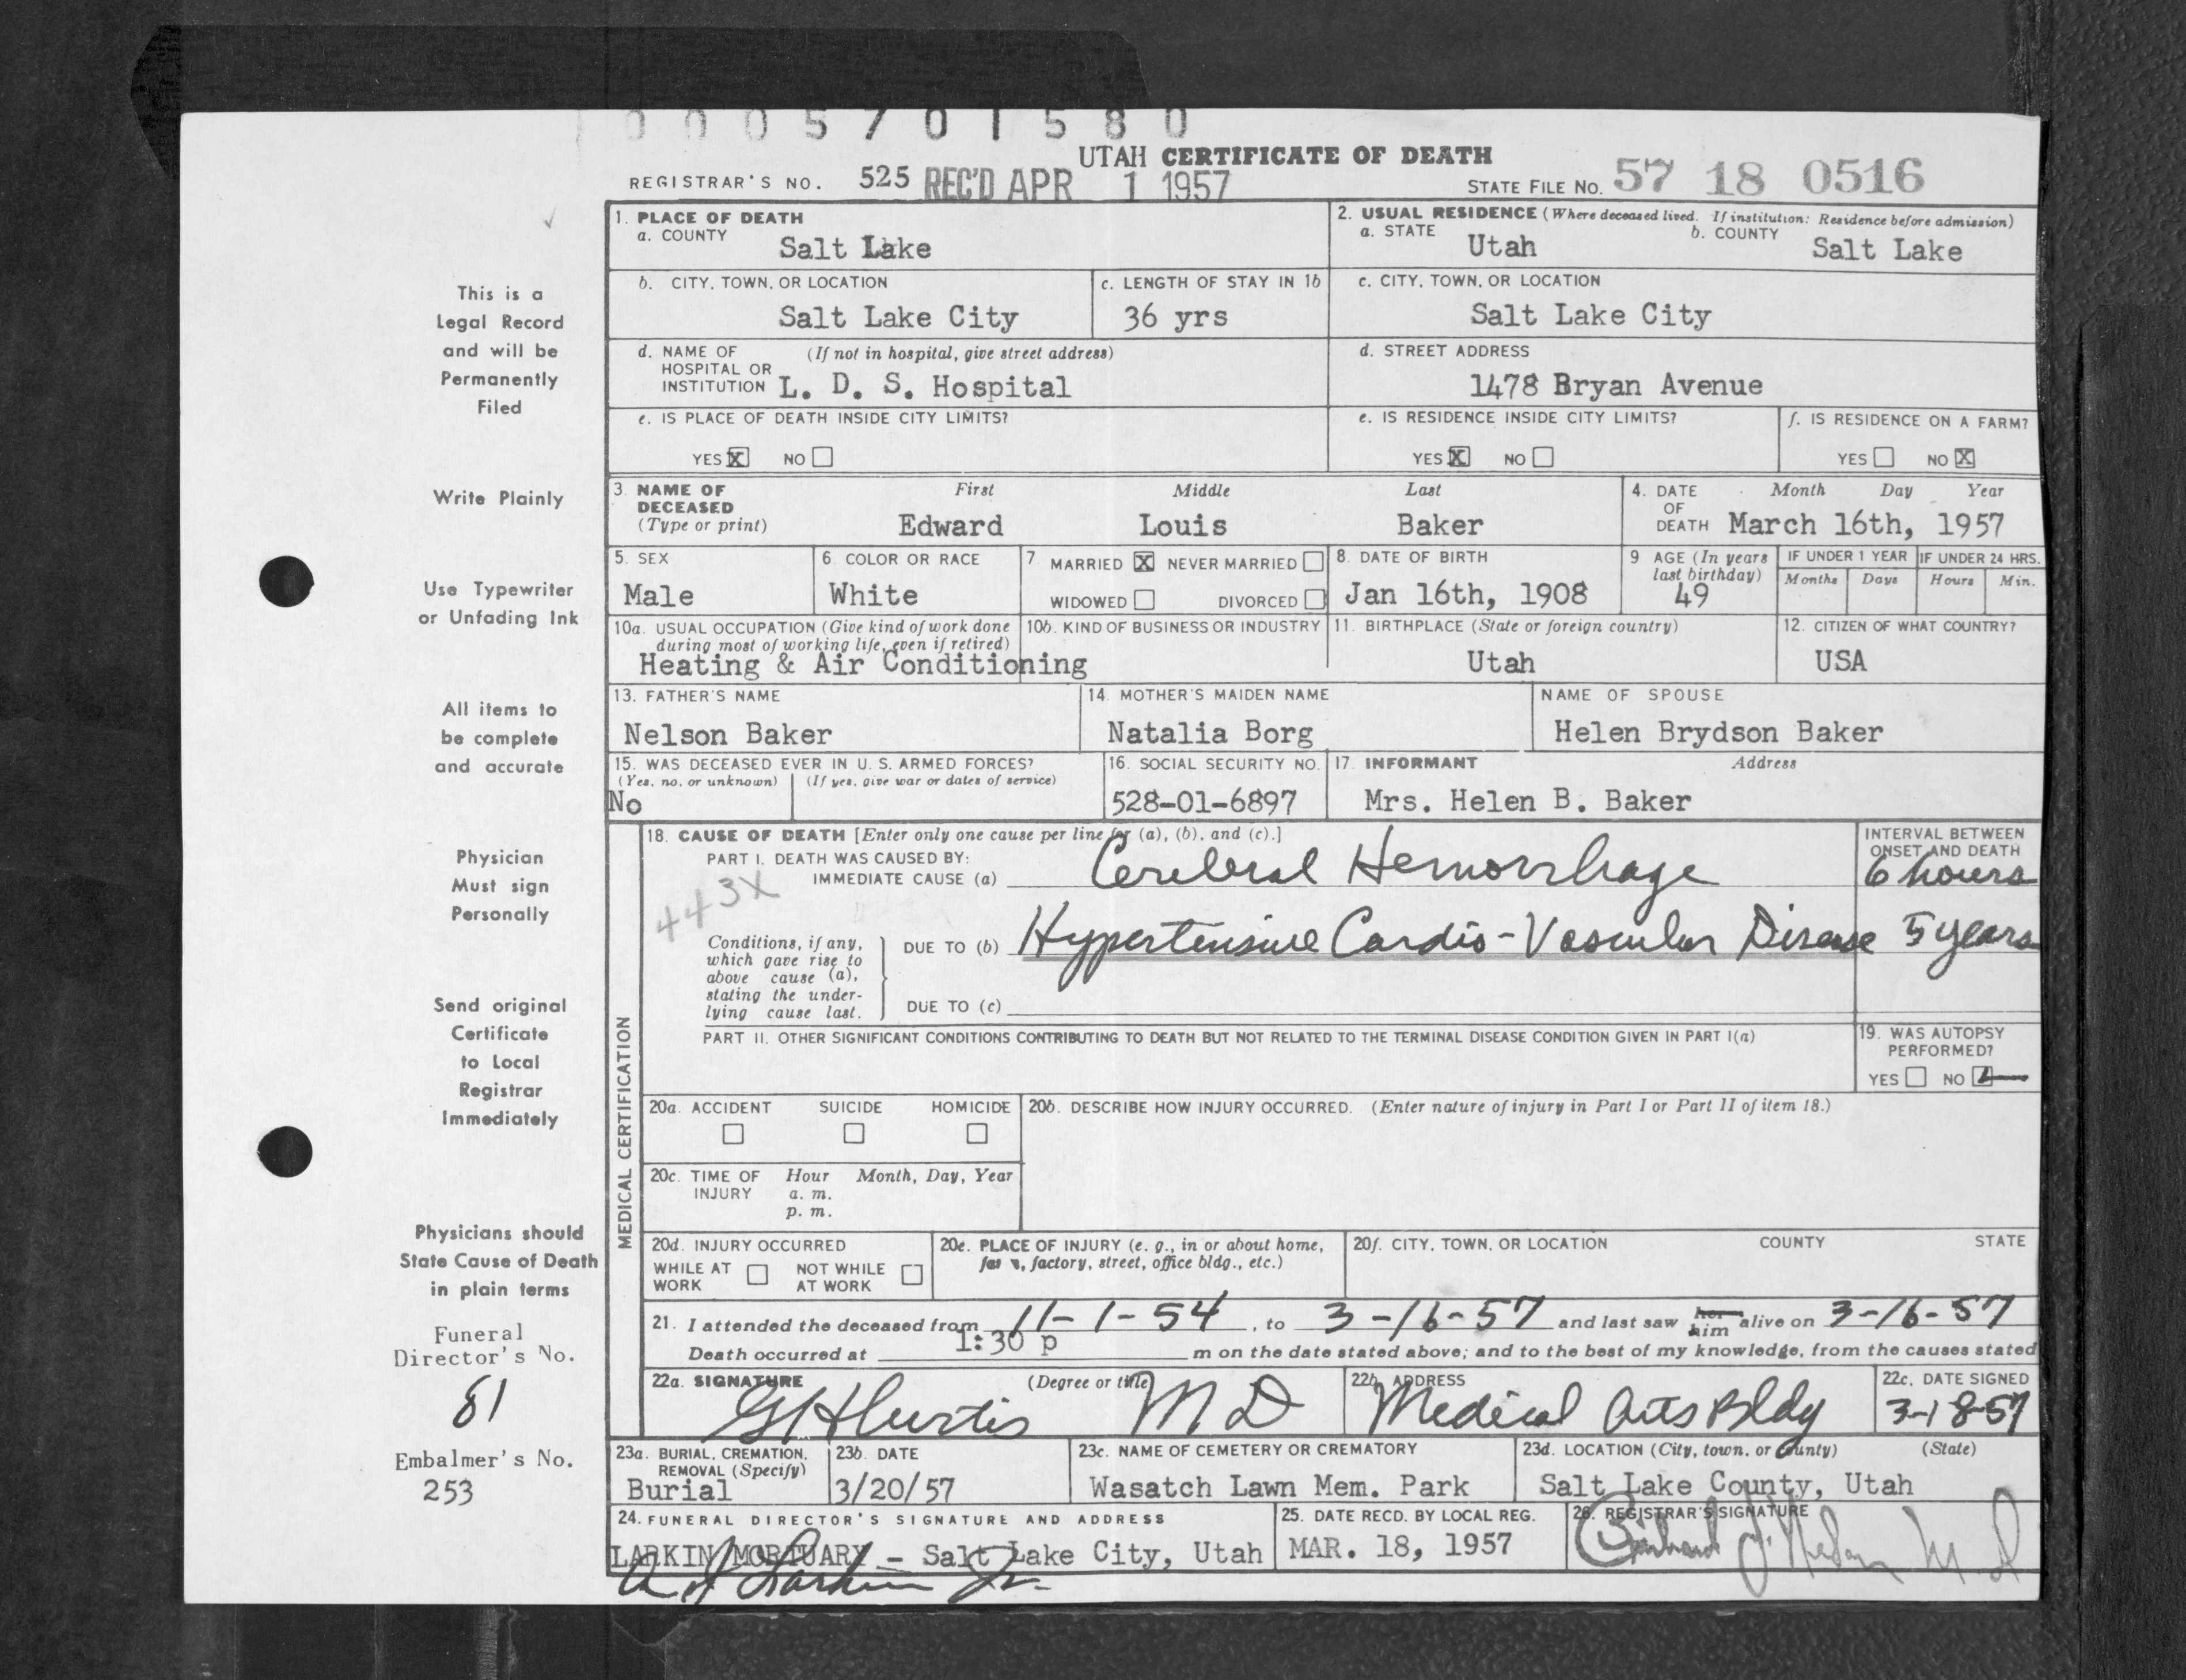 0005701580
UTAH CERTIFICATE OF DEATH
REGISTRAR'S NO. 525 REC'D APR 1 1957 STATE FILE NO. 57 18 0516
1. PLACE OF DEATH
a. COUNTY Salt Lake
2. USUAL RESIDENCE (Where deceased lived. If institution: Residence before admission)
a. STATE Utah b. COUNTY Salt Lake
b. CITY, TOWN, OR LOCATION Salt Lake City
c. LENGTH OF STAY IN 1b 36 yrs
c. CITY, TOWN, OR LOCATION Salt Lake City
d. NAME OF HOSPITAL OR INSTITUTION (If not in hospital, give street address) L. D. S. Hospital
d. STREET ADDRESS 1478 Bryan Avenue
e. IS PLACE OF DEATH INSIDE CITY LIMITS?
YES X NO
e. IS RESIDENCE INSIDE CITY LIMITS?
YES X NO
f. IS RESIDENCE ON A FARM?
YES NO X
3. NAME OF DECEASED (Type or print)
First Middle Last
Edward Louis Baker
4. DATE OF DEATH Month Day Year
March 16th, 1957
5. SEX Male
6. COLOR OR RACE White
7 MARRIED X NEVER MARRIED
WIDOWED DIVORCED
8. DATE OF BIRTH Jan 16th, 1908
9 AGE (In years last birthday) 49
IF UNDER 1 YEAR Months Days
IF UNDER 24 HRS. Hours Min.
10a. USUAL OCCUPATION (Give kind of work done during most of working life, even if retired)
10b. KIND OF BUSINESS OR INDUSTRY
Heating & Air Conditioning
11. BIRTHPLACE (State or foreign country) Utah
12. CITIZEN OF WHAT COUNTRY? USA
13. FATHER'S NAME Nelson Baker
14. MOTHER'S MAIDEN NAME Natalia Borg
NAME OF SPOUSE Helen Brydson Baker
15. WAS DECEASED EVER IN U. S. ARMED FORCES?
(Yes, no, or unknown) (If yes, give war or dates of service)
No
16. SOCIAL SECURITY NO. 528-01-6897
17. INFORMANT Address
Mrs. Helen B. Baker
MEDICAL CERTIFICATION
18. CAUSE OF DEATH [Enter only one cause per line for (a), (b), and (c).]
PART I. DEATH WAS CAUSED BY:
IMMEDIATE CAUSE (a) Cerebral Hemorrhage
INTERVAL BETWEEN ONSET AND DEATH
6 hours
443X
Conditions, if any, which gave rise to above cause (a), stating the underlying cause last.
DUE TO (b) Hypertensive Cardio-Vascular Disease 5 years
DUE TO (c)
PART II. OTHER SIGNIFICANT CONDITIONS CONTRIBUTING TO DEATH BUT NOT RELATED TO THE TERMINAL DISEASE CONDITION GIVEN IN PART I(a)
19. WAS AUTOPSY PERFORMED?
YES NO
20a. ACCIDENT SUICIDE HOMICIDE
20b. DESCRIBE HOW INJURY OCCURRED. (Enter nature of injury in Part I or Part II of item 18.)
20c. TIME OF INJURY Hour Month, Day, Year
a. m.
p. m.
20d. INJURY OCCURRED
WHILE AT WORK NOT WHILE AT WORK
20e. PLACE OF INJURY (e. g., in or about home, farm, factory, street, office bldg., etc.)
20f. CITY, TOWN, OR LOCATION COUNTY STATE
21. I attended the deceased from 11-1-54, to 3-16-57 and last saw her him alive on 3-16-57
Death occurred at 1:30 p m on the date stated above; and to the best of my knowledge, from the causes stated
22a. SIGNATURE (Degree or title)
G H Curtis MD
22b. ADDRESS
Medical Arts Bldg
22c. DATE SIGNED
3-18-57
23a. BURIAL, CREMATION, REMOVAL (Specify)
Burial
23b. DATE
3/20/57
23c. NAME OF CEMETERY OR CREMATORY
Wasatch Lawn Mem. Park
23d. LOCATION (City, town, or County) (State)
Salt Lake County, Utah
24. FUNERAL DIRECTOR'S SIGNATURE AND ADDRESS
LARKIN MORTUARY - Salt Lake City, Utah
Larkin Jr.
25. DATE RECD. BY LOCAL REG.
MAR. 18, 1957
26. REGISTRAR'S SIGNATURE
This is a
Legal Record
and will be
Permanently
Filed
Write Plainly
Use Typewriter
or Unfading Ink
All items to
be complete
and accurate
Physician
Must sign
Personally
Send original
Certificate
to Local
Registrar
Immediately
Physicians should
State Cause of Death
in plain terms
Funeral
Director's No.
81
Embalmer's No.
253